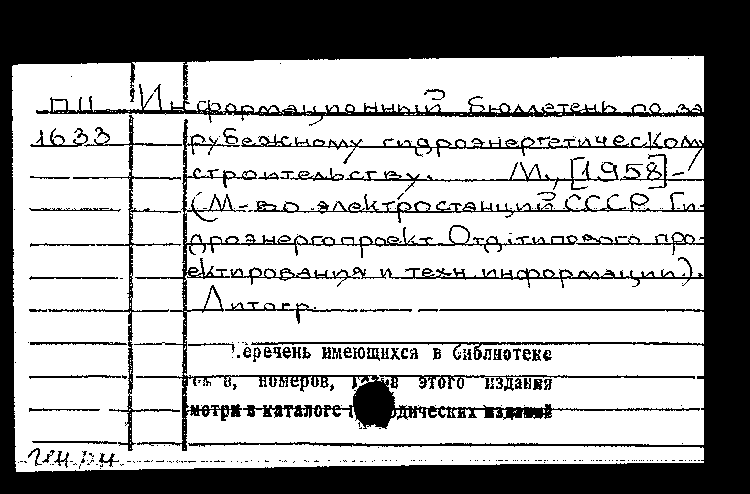 П11 Информационный бюллетень по за
1633 рубежному гидроэнергетическому
строительству. М., [1958]-
(М-во электростанций СССР. Ги-
дроэнергопроект. Отд. типового про-
ектирования и техн. информации).
Литогр.
Перечень имеющихся в библиотеке
номеров, этого издания
смотри в каталоге периодических изданий